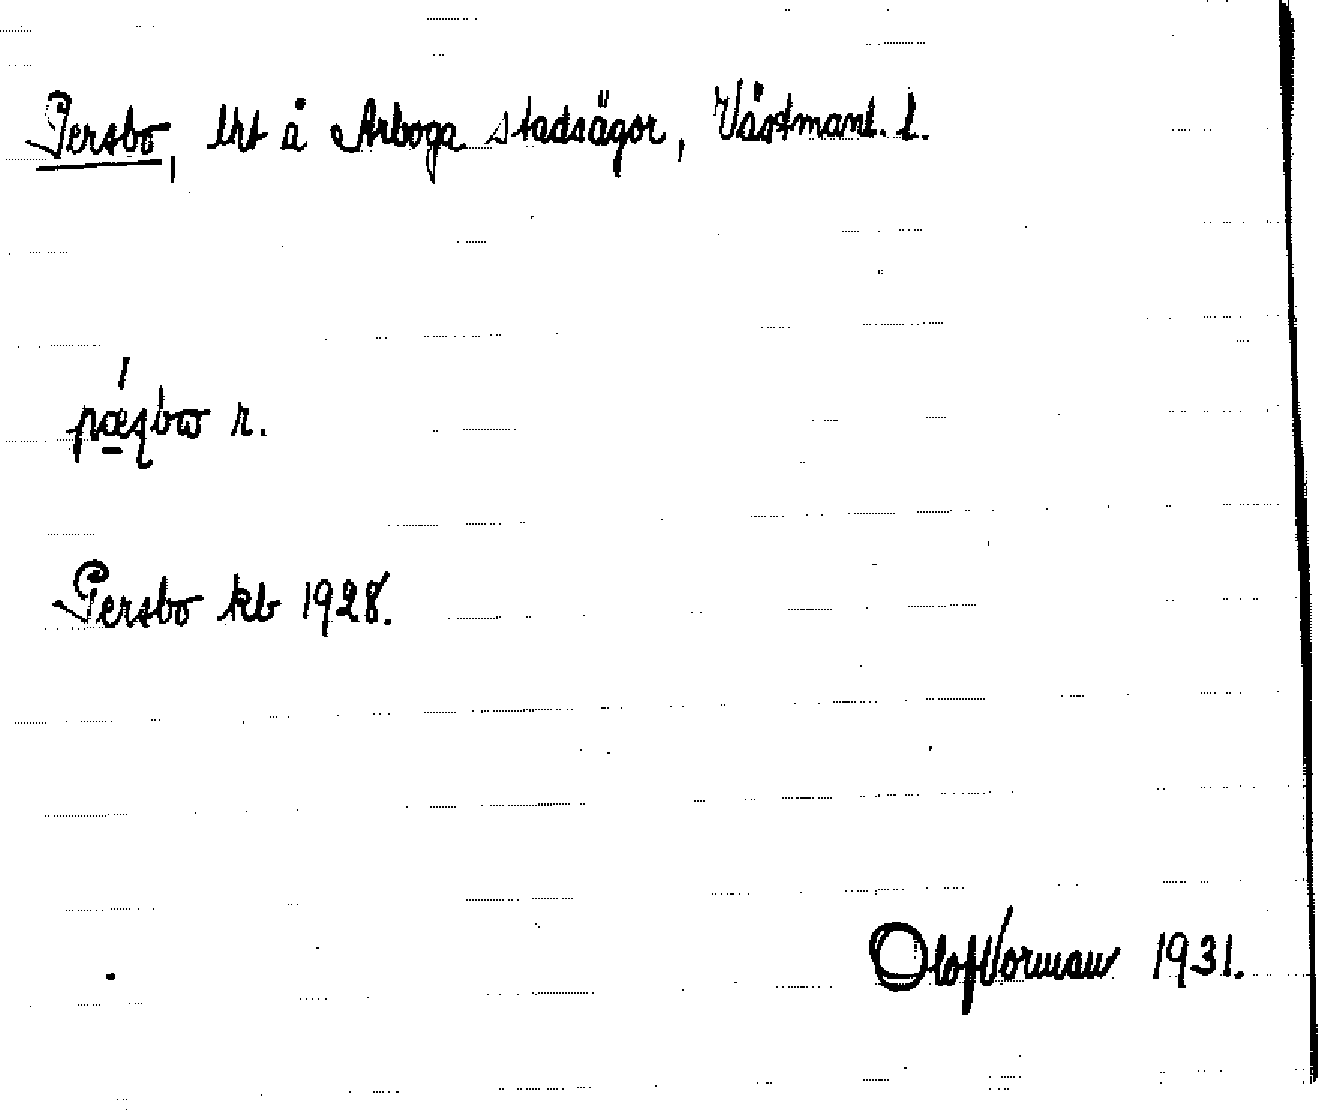 Persbo, lht å Arboga stadsägor, Västmanl. l.
pæʂbω r.
Persbo kb 1928.
Olof Vorman 1931.